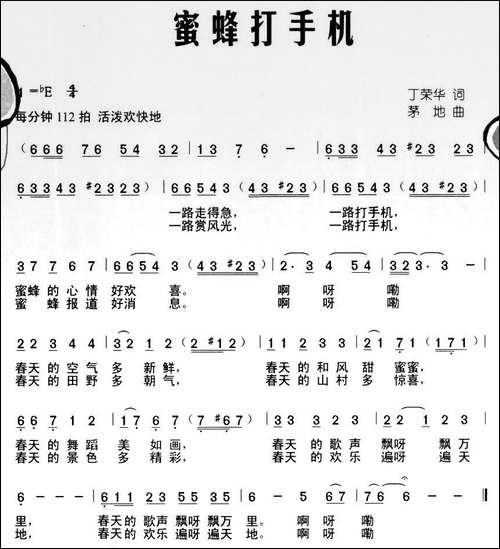 蜜蜂打手机
1=♭E 4/4
丁荣华 词
每分钟 112 拍 活泼欢快地
茅 地 曲
(666 76 54 32 | 13 7 6 - | 633 43 #23 23
63343 #2323) | 66543 (43 #23) | 66543 (43 #23) |
一路走得急， 一路打手机，
一路赏风光， 一路打手机，
37 7 6 7 | 6654 3 (43 #23) | 2·3 4 54 | 323·3 - |
蜜蜂 的 心 情 好欢 喜。 啊 呀 嘞
蜜 蜂 报 道 好消 息。 啊 呀 嘞
22 3 4 4 | 32 · 12 (2 #12) | 11 2 3 3 | 21 71 (171) |
春天 的 空 气 多 新鲜， 春天 的 和 风 甜 蜜蜜，
春天 的 田 野 多 朝气， 春天 的 山 村 多 惊喜，
66 7 1 2 | 17 · 67 (7 #67) | 33 3 2 3 | 22 1 23 |
春天 的 舞 蹈 美 如画， 春天 的 歌 声 飘呀 飘万
春天 的 景 色 多 精彩， 春天 的 欢 乐 遍呀 遍天
6 - - - | 611 23 55 35 | 6 - 5 67 | 76 6 - - |
里， 春天的 歌声 飘呀 飘万 里。 啊 呀 嘞
地， 春天的 欢乐 遍呀 遍天 地。 啊 呀 嘞